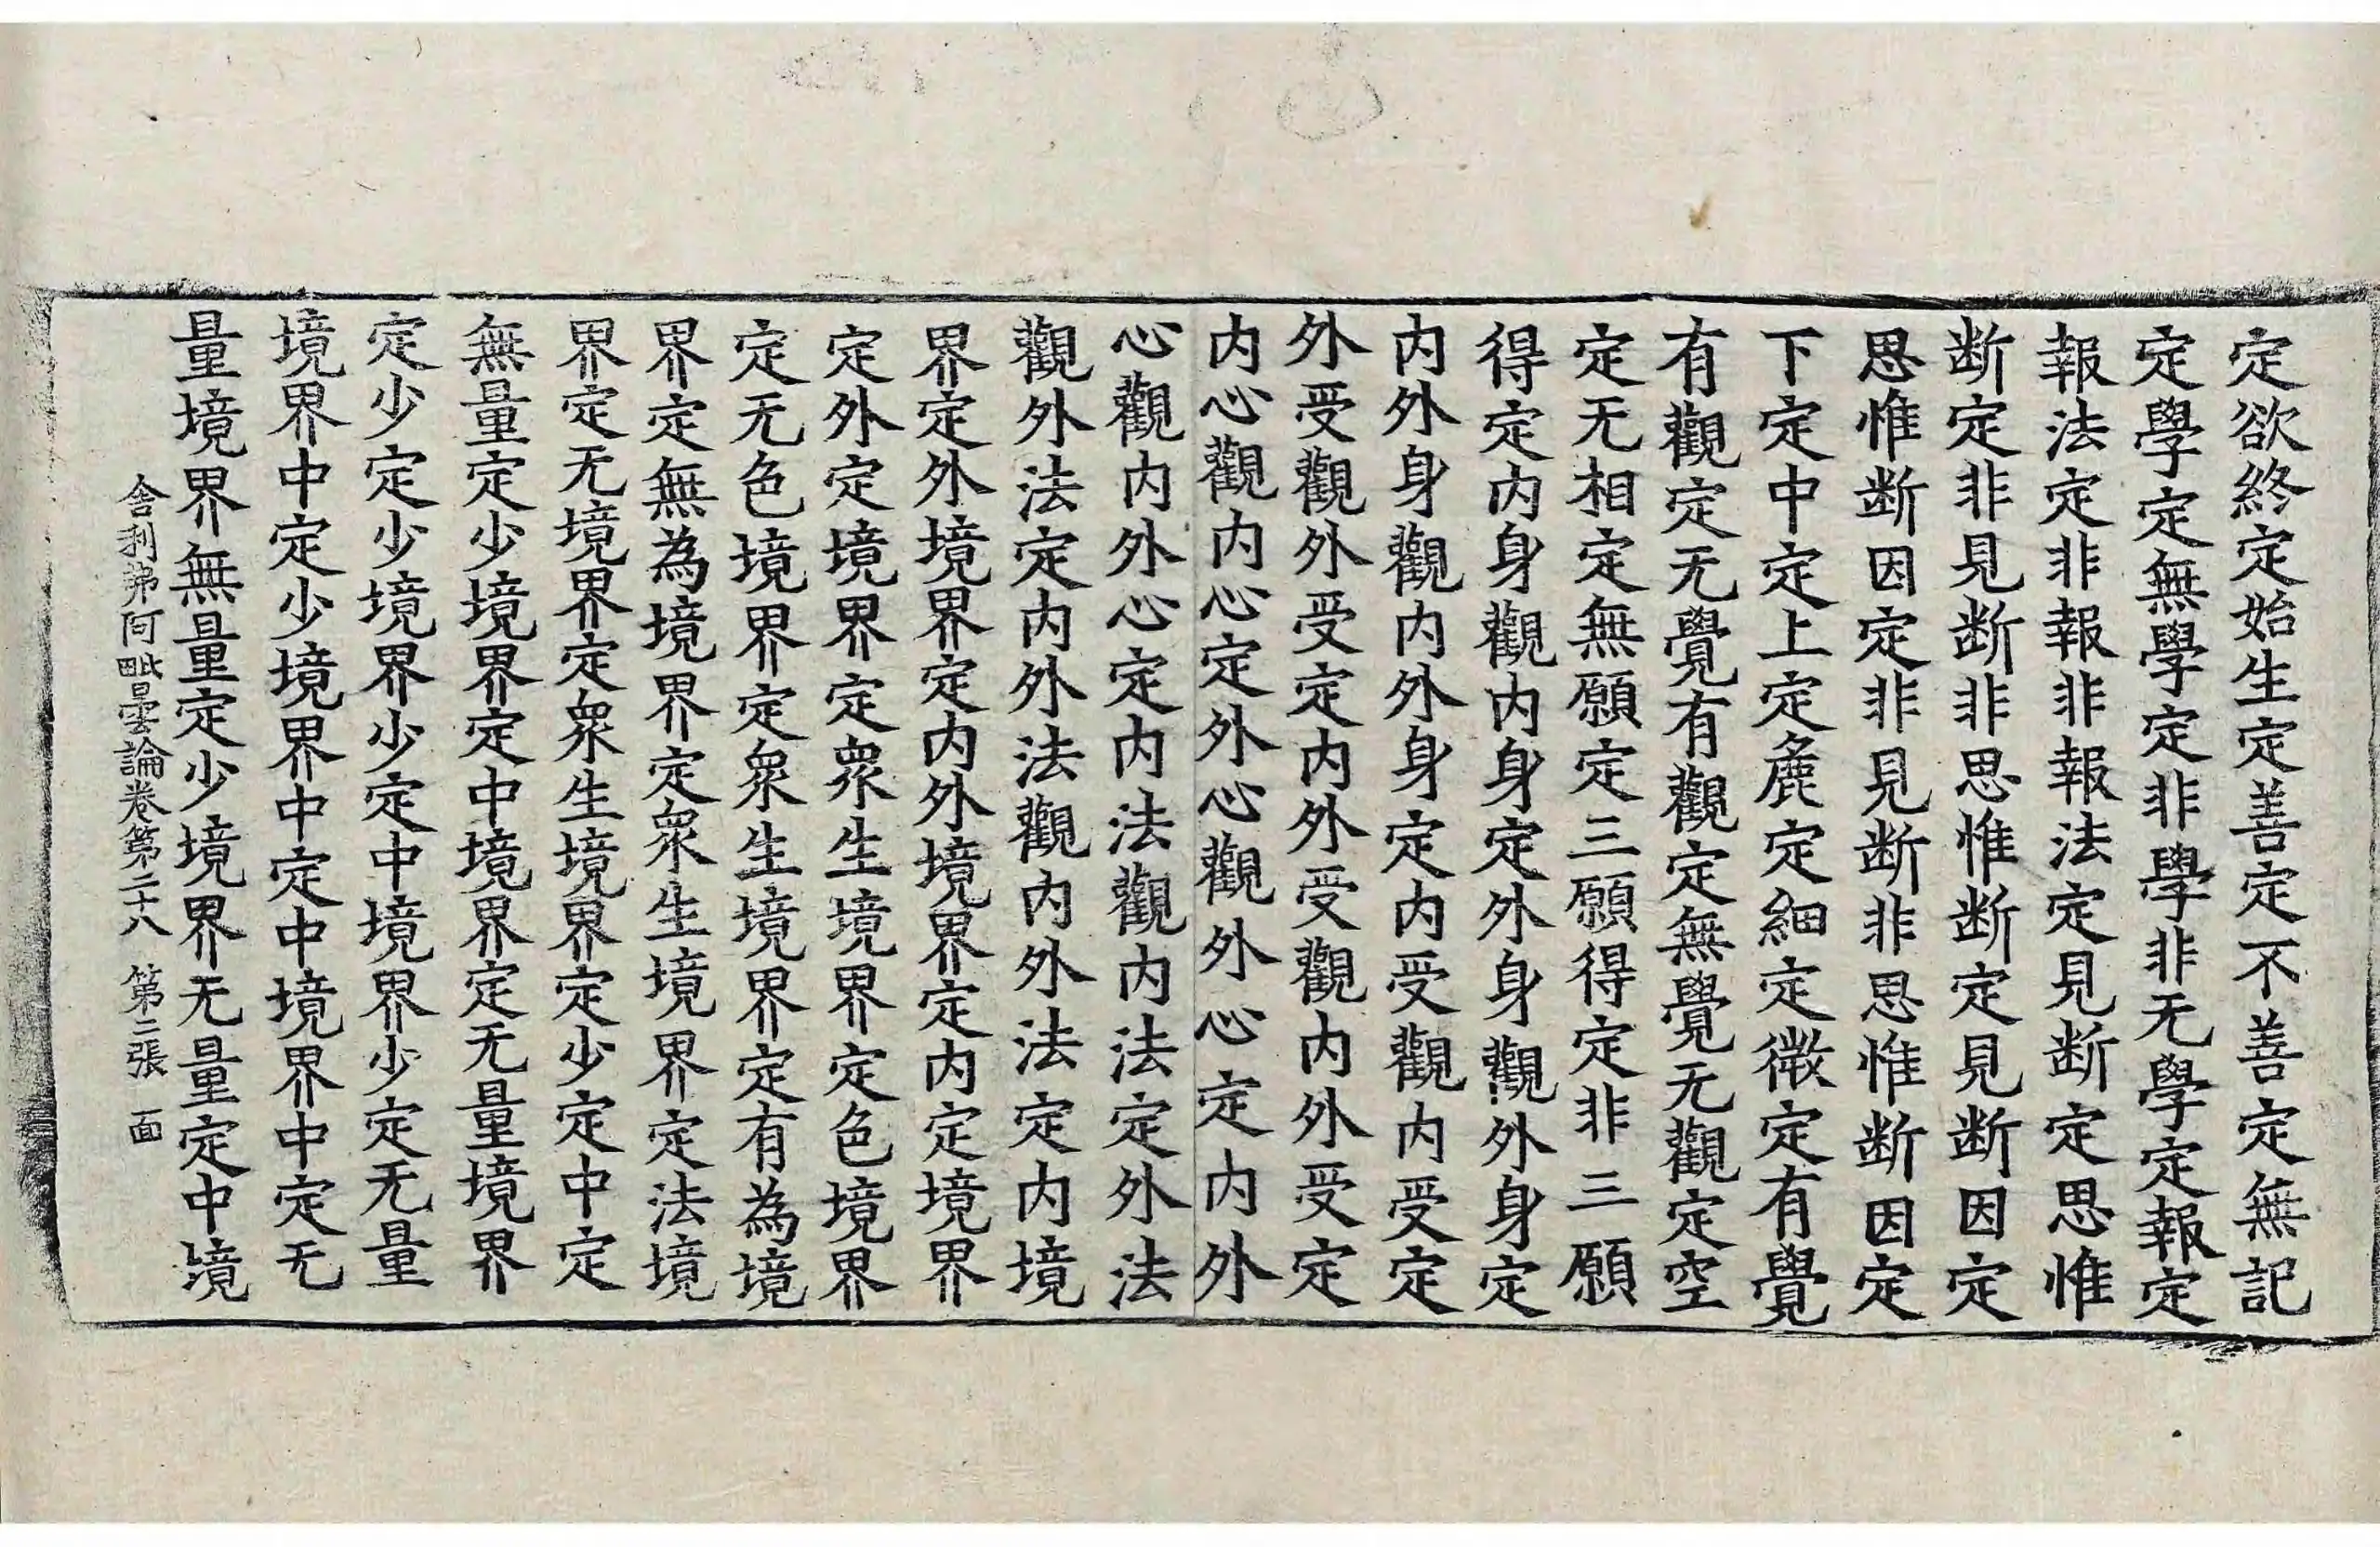 定欲終定始生定善定不善定無記
定學定無學定非學非无學定報定
報法定非報非報法定見断定思惟
断定非見断非思惟断定見断因定
思惟断因定非見断非思惟断因定
下定中定上定麁定細定微定有覺
有觀定无覺有觀定無覺无觀定空
定无相定無願定三願得定非三願
得定内身觀内身定外身觀外身定
内外身觀内外身定内受觀内受定
外受觀外受定内外受觀内外受定
内心觀内心定外心觀外心定内外
心觀内外心定内法觀内法定外法
觀外法定内外法觀内外法定内境
界定外境界定内外境界定内定境界
定外定境界定衆生境界定色境界
定无色境界定衆生境界定有為境
界定無為境界定衆生境界定法境
界定无境界定衆生境界定少定中定
無量定少境界定中境界定无量境界
定少定少境界少定中境界少定无量
境界中定少境界中定中境界中定无
量境界無量定少境界无量定中境
舎利弗阿毗曇論卷第二十八 第二張 面